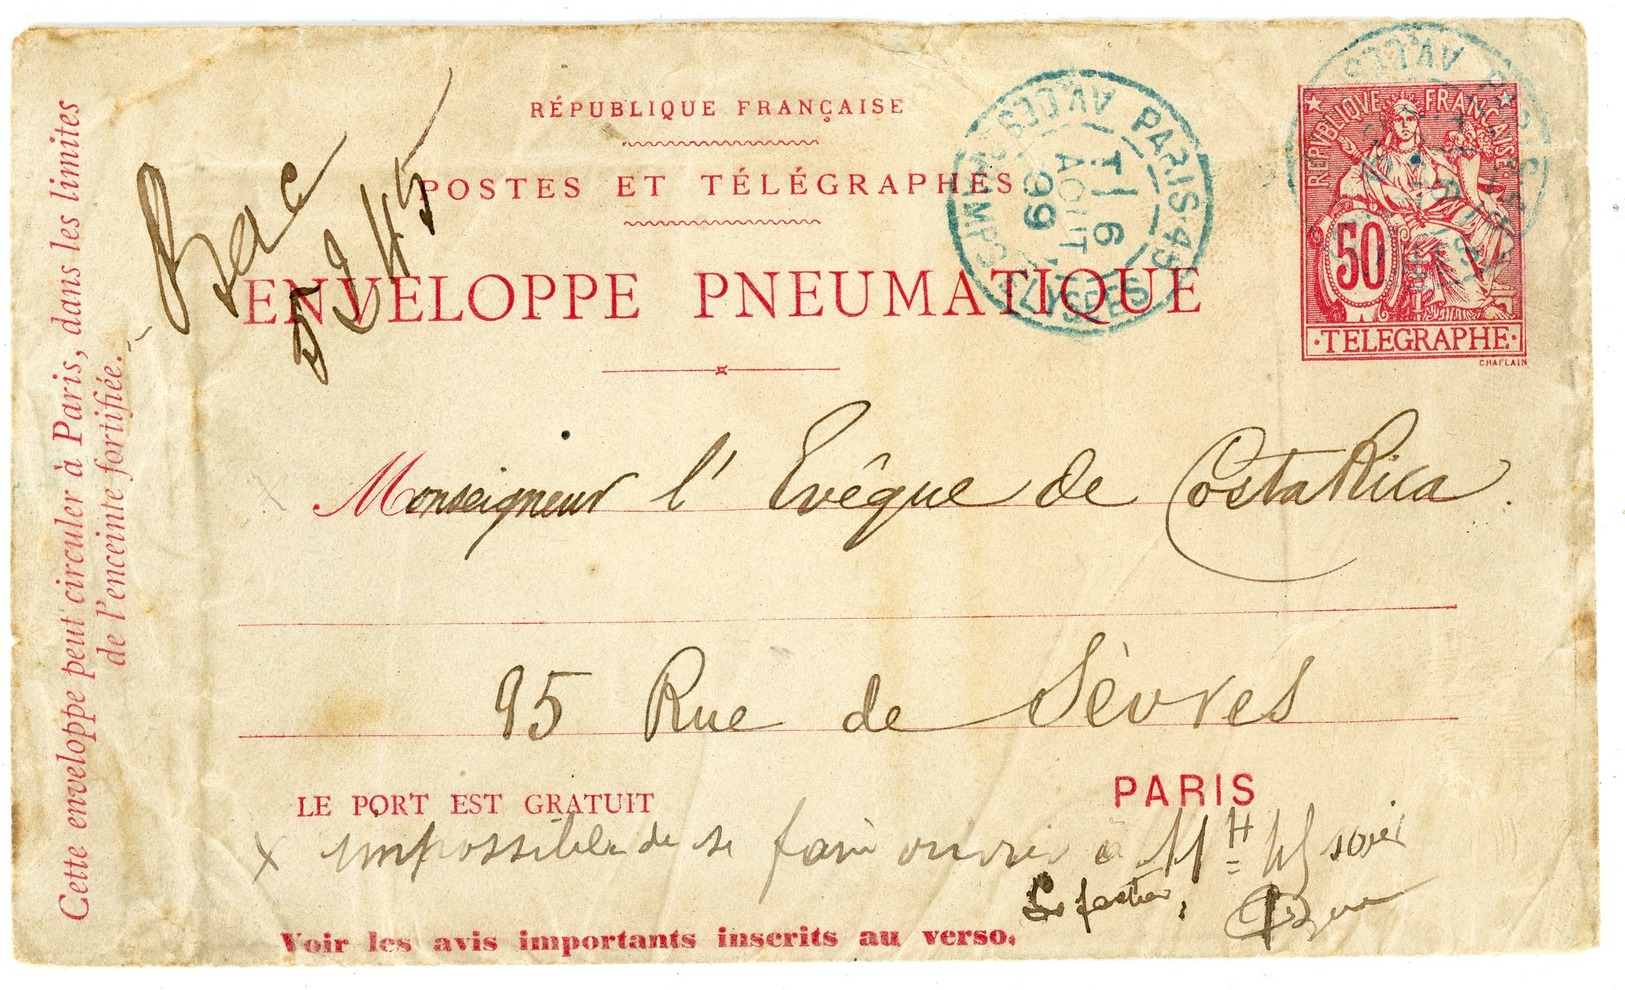 RÉPUBLIQUE FRANÇAISE
POSTES ET TÉLÉGRAPHES
ENVELOPPE PNEUMATIQUE
PARIS-45 AV. DES CHAMPS ELYSÉES
T 6
AOUT
99
RÉPUBLIQUE FRANÇAISE
50
TELEGRAPHE
CHAPLAIN
Bac
Cette enveloppe peut circuler à Paris, dans les limites
de l'enceinte fortifiée.
Monseigneur l'Evêque de Costa Rica.
95 Rue de Sèvres
LE PORT EST GRATUIT
PARIS
x impossible de se faire ouvrir à
Le facteur
Voir les avis importants inscrits au verso.